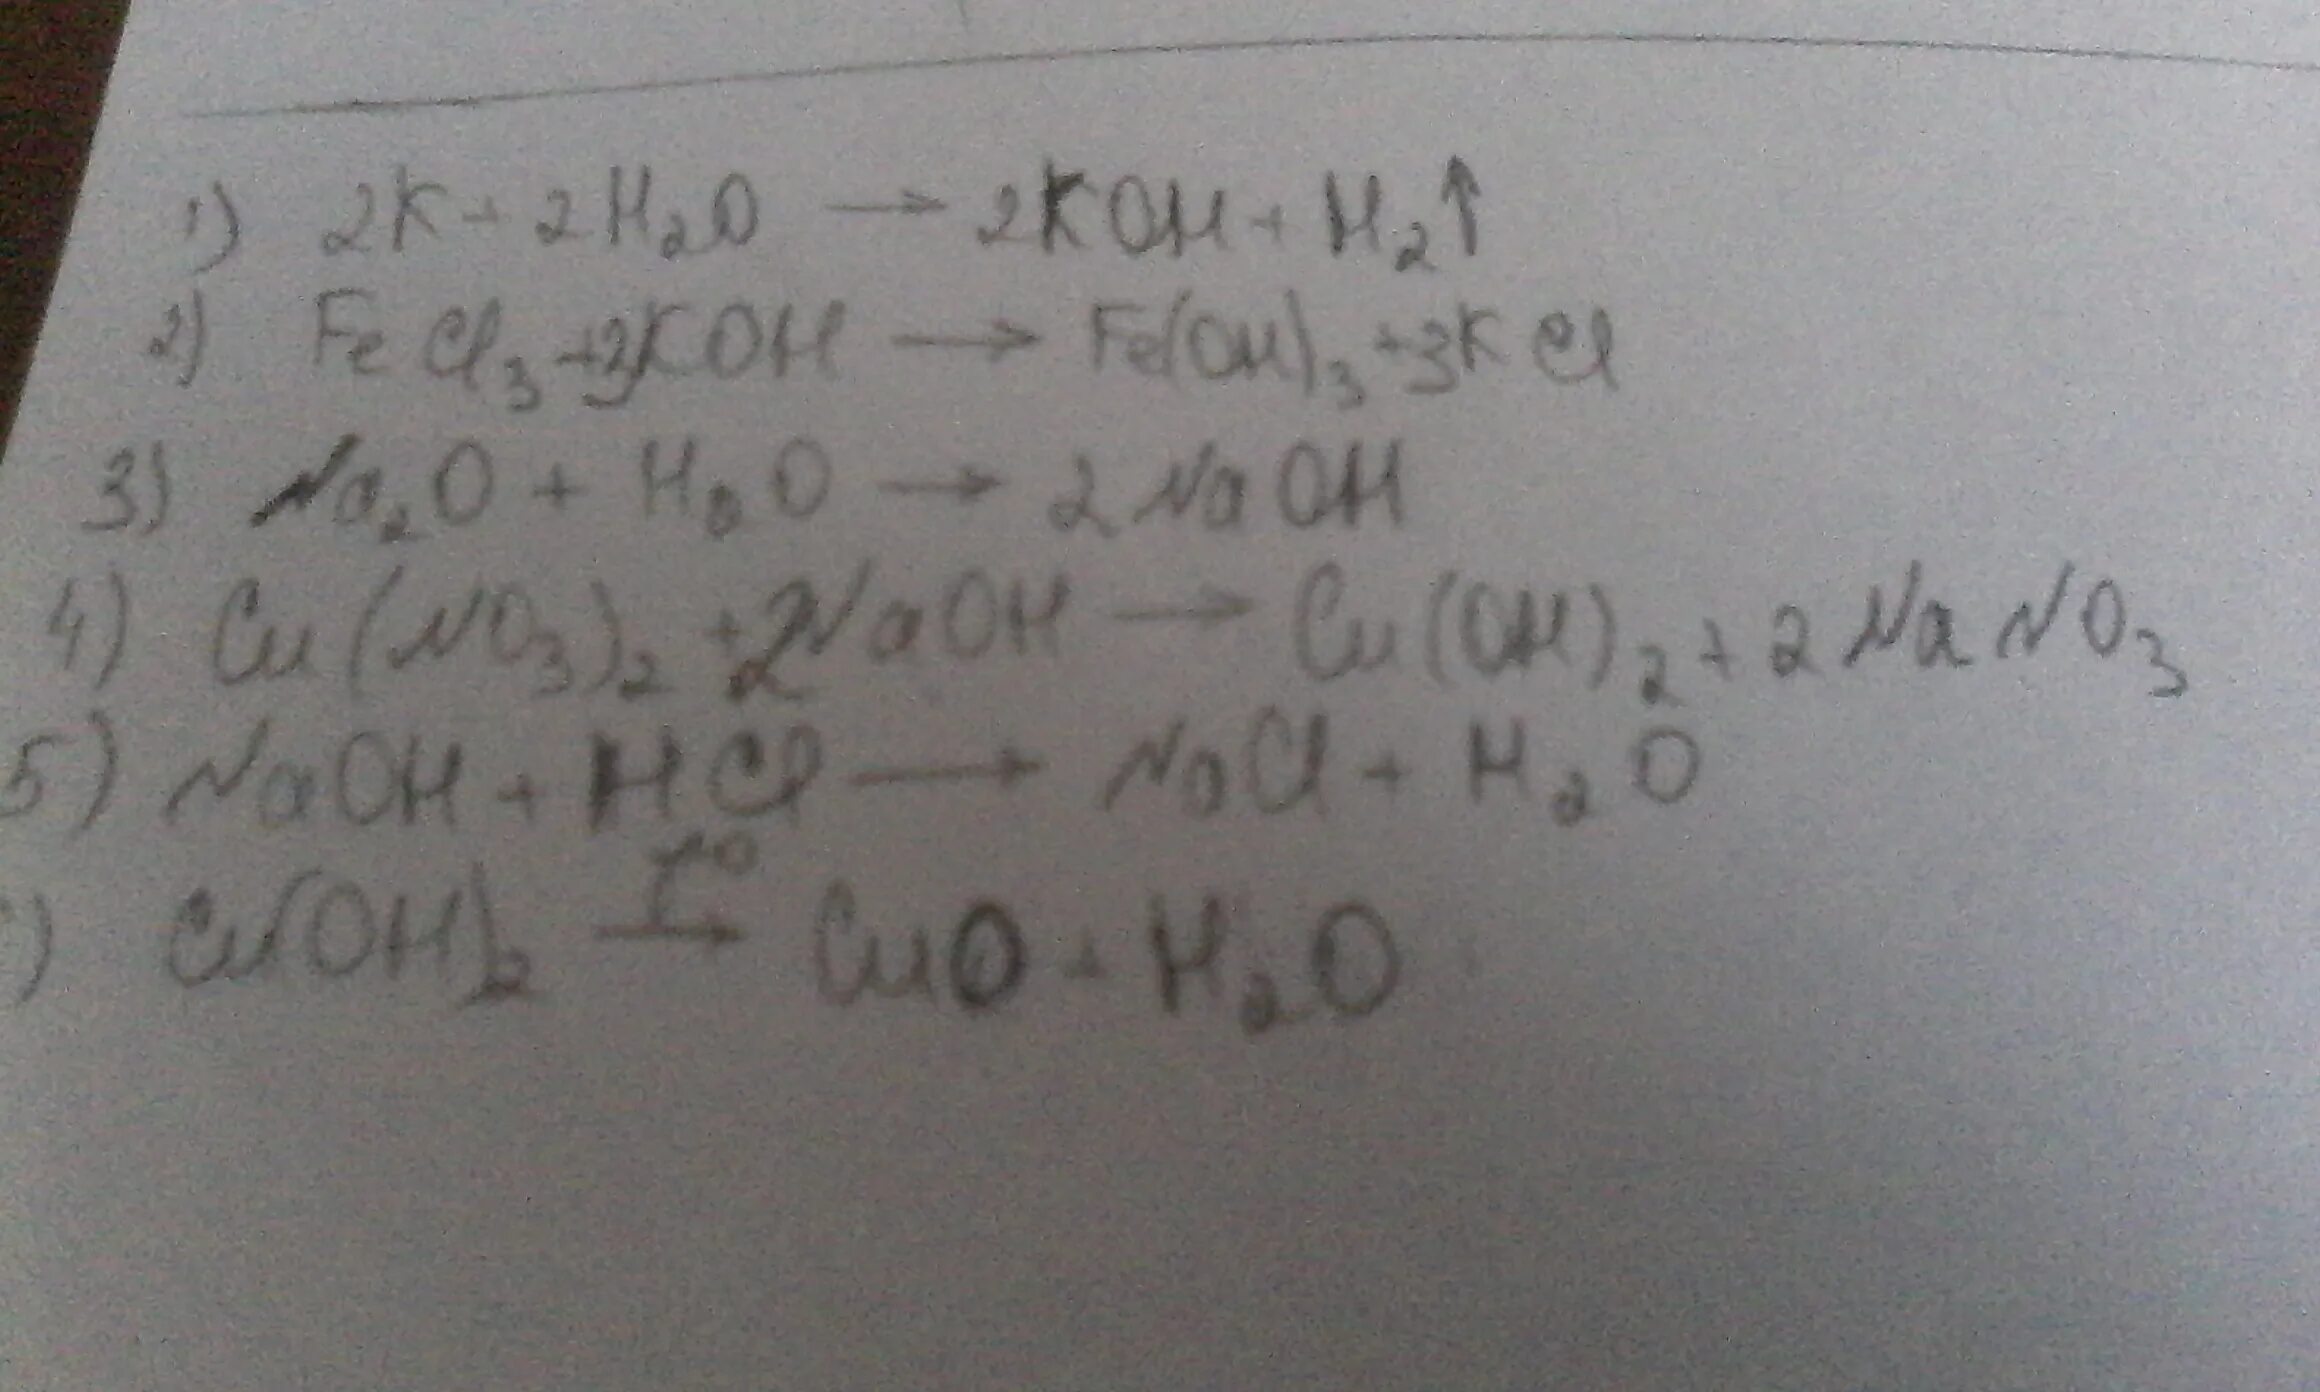 1) 2K + 2H₂O → 2KOH + H₂↑
2) FeCl₃ + 3KOH → Fe(OH)₃ + 3KCl
3) Na₂O + H₂O → 2NaOH
4) Cu(NO₃)₂ + 2NaOH → Cu(OH)₂ + 2NaNO₃
5) NaOH + HCl → NaCl + H₂O
) Cu(OH)₂ →t° CuO + H₂O